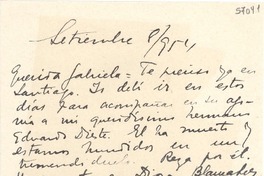 57041
Setiembre 8/954
Querida Gabriela = Te pienso ya en
Santiago. Yo debí ir en estos
días para acompañar en su ago-
nía a mi queridísimo hermano
Eduardo Dieste. El ha muerto y
estamos hundidos en un
tremendo duelo. Rega por él.
Dios